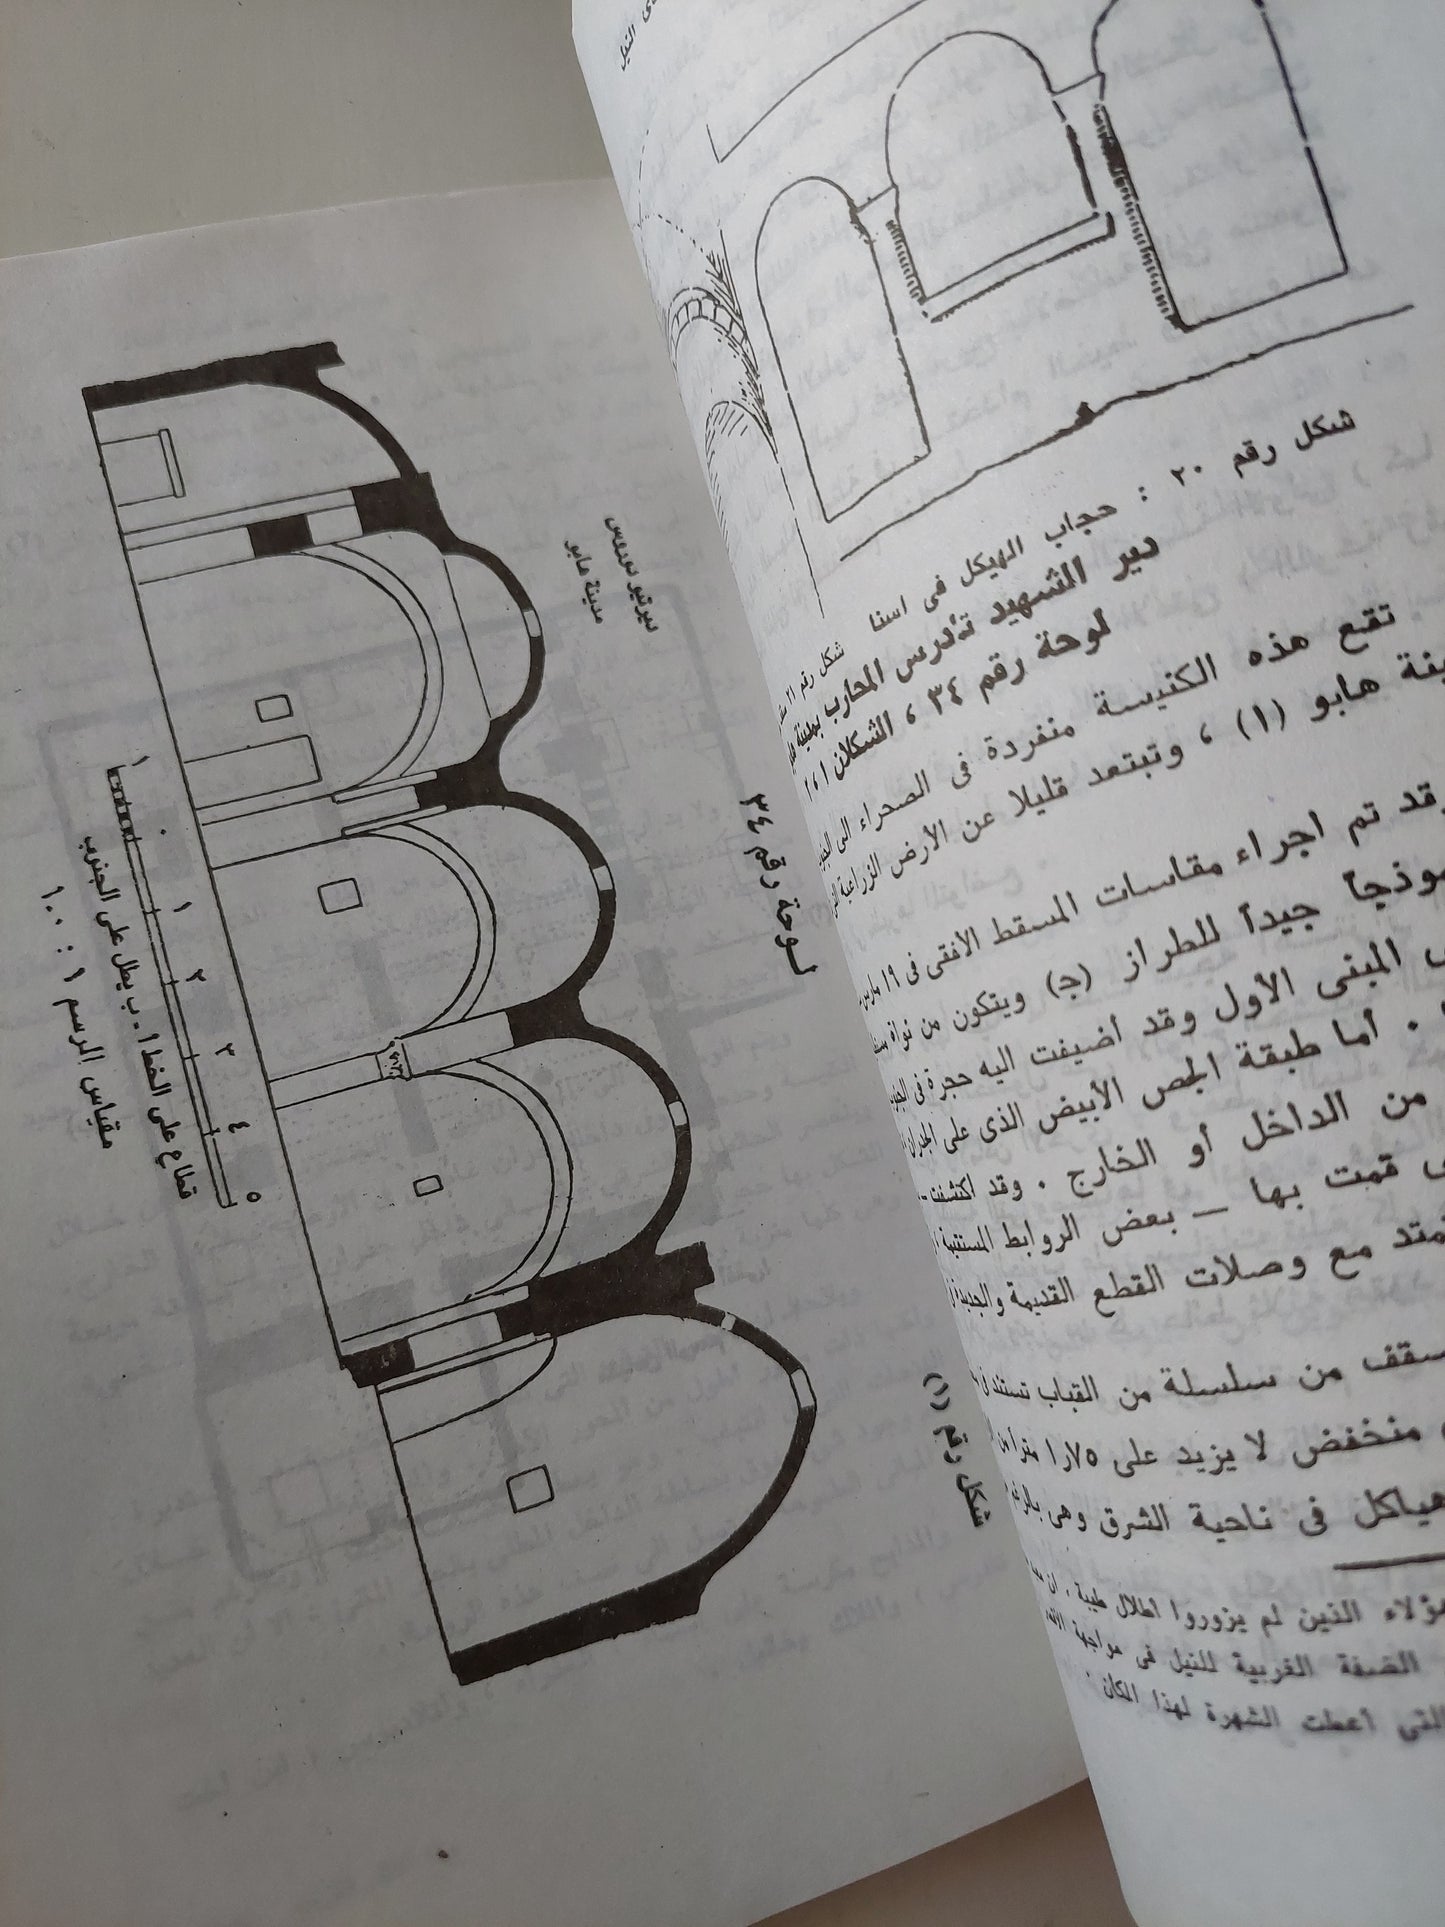 شكل رقم ٢٠ : حجاب الهيكل فى اسنا
شكل رقم ٢١
دير الشهيد تادرس المحارب بمدينة
لوحة رقم ٣٤ ، الشكلان ١ ، ٢
تقع هذه الكنيسة منفردة فى الصحراء الى
هابو (١) ، وتبتعد قليلا عن الأرض الزراعية
وقد تم اجراء مقاسات المسقط الأفقى فى ١٩ مارس
جيدأ للطراز (ج) ويتكون من نواة
المبنى الأول وقد أضيفت اليه حجرة فى
. أما طبقة الجص الأبيض الذى على الجدران
من الداخل أو الخارج . وقد اكتشفت
قمت بها — بعض الروابط
مع وصلات القطع القديمة والجديدة
من سلسلة من القباب تستند
منخفض لا يزيد على ١٫٧٥ مترا من
فى ناحية الشرق وهى
الذين لم يزوروا اطلال طيبة .
الضفة الغربية للنيل فى مواجهة
التى أعطت الشهرة لهذا المكان .
لوحة رقم ٣٤
دير تيودوروس
مدينة هابو
شكل رقم (١)
١ ٠ ١ ٢ ٣ ٤ ٥
قطاع على الخط ا - ب يطل على الجنوب
مقياس الرسم ١ : ١٠٠